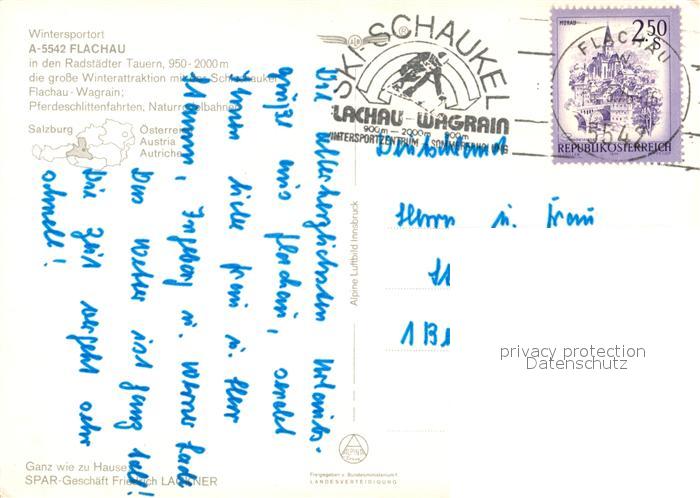 Wintersportort
A-5542 FLACHAU
in den Radstädter Tauern, 950-2000 m
die große Winterattraktion mit der Schischaukel
Flachau-Wagrain;
Pferdeschlittenfahrten, Naturrodelbahnen
Salzburg
Österreich
Austria
Autriche
Die allerherzlichsten Urlaubs-
grüße aus Flachau, sendet
Ihnen liebe Frau u. Herr
Ingeborg u. Werner
Das Wetter ist ganz toll!
Die Zeit vergeht sehr
schnell!
Ganz wie zu Hause
SPAR-Geschäft Friedrich LACKNER
Alpine Luftbild Innsbruck
ALPINE
Freigegeben v. Bundesministerium f.
LANDESVERTEIDIGUNG
SKI-SCHAUKEL
®
FLACHAU-WAGRAIN
900m – 2000m – 900m
WINTERSPORTZENTRUM - SOMMERERHOLUNG
MURAU
2.50
REPUBLIK ÖSTERREICH
FLACHAU
5542
Deutschland
Herrn u. Frau
privacy protection
Datenschutz